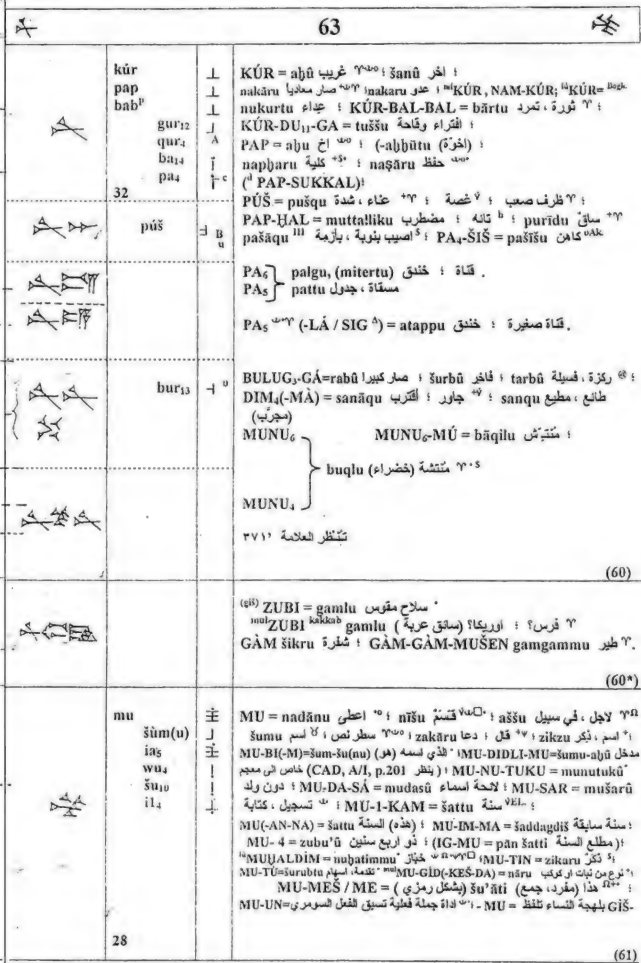 63
kúr
pap
bab
gur12
qur4
ba14
pa4
32
KÚR = aḫû غريب ؛ šanû اخر ؛
nakāru صار معادياً ؛ nakaru عدو ؛ KÚR , NAM-KÚR; KÚR=
nukurtu عداء ؛ KÚR-BAL-BAL = bārtu ثورة ، تمرد ؛
KÚR-DU11-GA = tuššu افتراء وقاحة ؛
PAP = aḫu اخ ؛ (-aḫḫūtu (اخوّة) ؛
napḫaru كلية ؛ naṣāru حفظ
(d PAP-SUKKAL)؛
púš
PÚŠ = pušqu عناء ، شدة ؛ غصة ؛ ظرف صعب ؛
PAP-ḪAL = muttalliku مضطرب ؛ تائه ؛ purīdu ساق
pašāqu III اصيب بنوبة ، بأزمة ؛ PA4-ŠIŠ = pašīšu كاهن
PA6 palgu, (mitertu) قناة ؛ خندق .
PA5 pattu مسقاة ، جدول
PA5 (-LÁ / SIG) = atappu قناة صغيرة ؛ خندق .
bur13
BULUG3-GÁ=rabû صار كبيرا ؛ šurbû فاخر ؛ tarbû ركزة ، فسيلة ؛
DIM4(-MÀ) = sanāqu أقترب ؛ جاور ؛ sanqu طائع ، مطيع
(مجرَّب)
MUNU6 MUNU6-MÚ = bāqilu ؛
buqlu مُنتشة (خضراء)
MUNU4
تنظر العلامة ٣٧١
(60)
(giš) ZUBI = gamlu سلاح مقوس
mul ZUBI kakkab gamlu فرس؟ ؛ اوريكا؟ (سائق عربة)
GÀM šikru شفرة ؛ GÀM-GÀM-MUŠEN gamgammu طير .
(60*)
mu
šùm(u)
ia5
wu4
šu10
il4
28
MU = nadānu اعطى ؛ nīšu قَسَمْ ؛ aššu لاجل ، في سبيل
šumu اسم ؛ سطر نص ؛ zakāru دعا ؛ قال ؛ zikzu اسم ، ذِكر ؛
MU-BI(-M)=šum-šu(nu) الذي اسمه (هو) ؛ MU-DIDLI-MU=šumu-aḫû مدخل
خاص الى معجم (CAD, A/I, p.201 ينظر) ؛ MU-NU-TUKU = munutukû
دون ولد ؛ MU-DA-SÁ = mudasû لائحة اسماء ؛ MU-SAR = mušarû
تسجيل ، كتابة ؛ MU-1-KAM = šattu سنة ؛
MU(-AN-NA) = šattu (هذه) السنة ؛ MU-IM-MA = šaddagdiš سنة سابقة ؛
MU- 4 = zubu'û ذو اربع سنين ؛ (IG-MU = pān šatti مطلع السنة)؛
lú MUḪALDIM = nuḫatimmu خبّاز ؛ MU-TIN = zikaru ذكَرٌ ؛
MU-TÚ=šurubtu تقدمة، اسهام ؛ MU-GÍD(-KEŠ-DA) = nāru نوع من نبات او كوكب ؛
MU-MEŠ / ME = šu'āti (بشكل رمزي) هذا (مفرد، جمع) ؛
MU-UN= اداة جملة فعلية تسبق الفعل السومري ؛ - MU = بلهجة النساء تلفظ GIŠ-
(61)